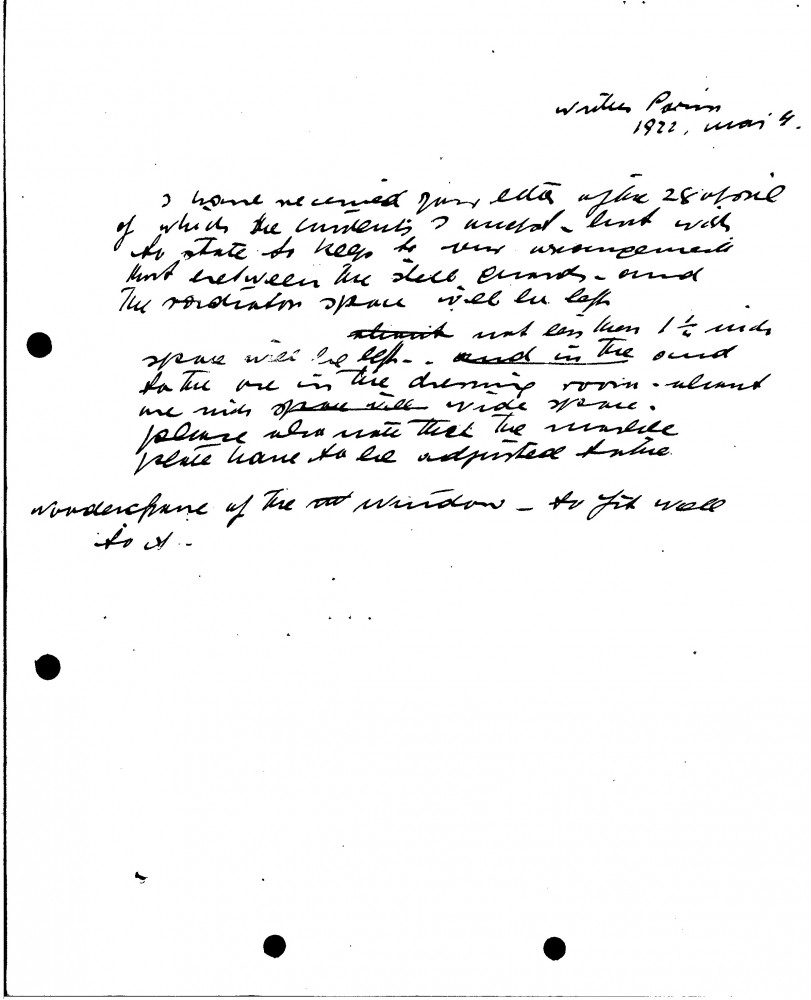 1922, mai 4.
I have received your letter of the 28 april
of which the contents I accept - but wish
to state to keep to our arrangement
that between the steel guards - and
the radiator space will be left
about not less then 1 1/4 inch
space will be left - - and in the and
to the one in the dressing room - about
one inch space will wide space.
please also note that the marble
plate have to be adjusted to the
of the window - to fit well
to it -